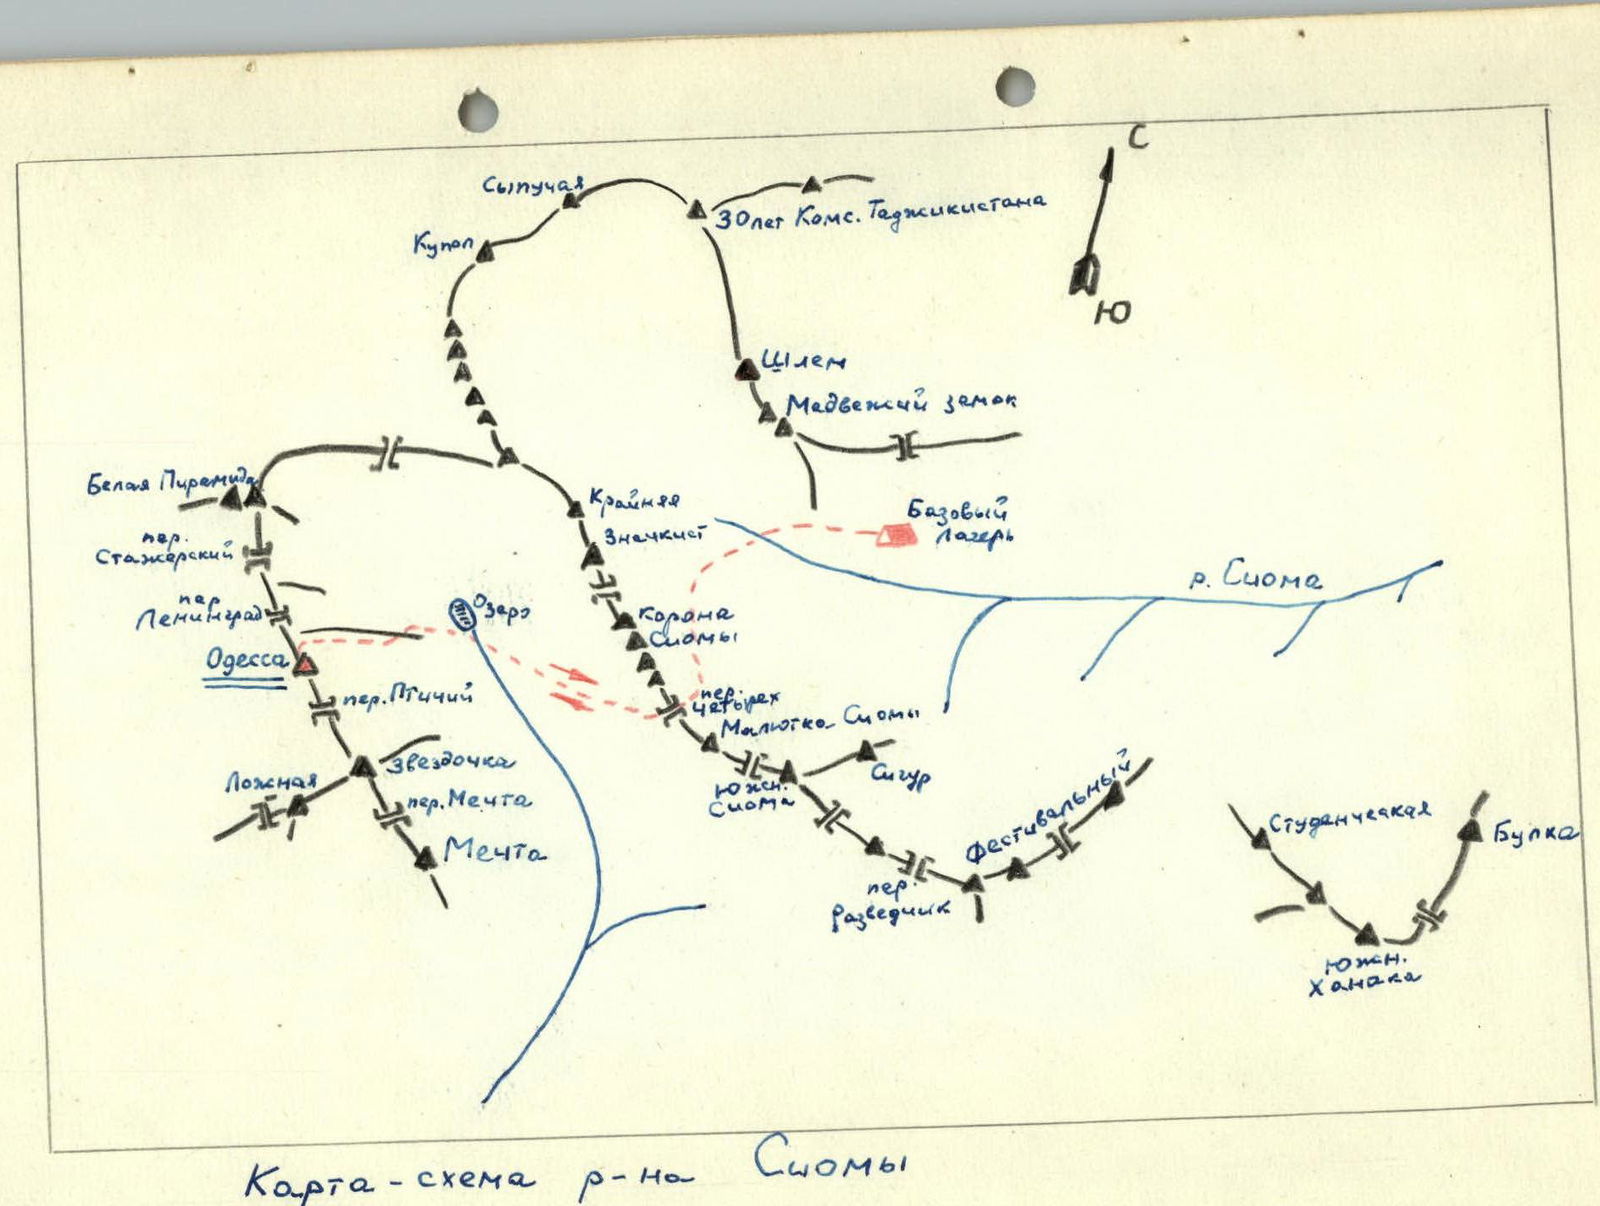 С
Ю
Сыпучая
30 лет Комс. Таджикистана
Купол
Шлем
Медвежий замок
Белая Пирамида
Крайняя
Значкист
Базовый
Лагерь
пер.
Стажерский
р. Сиома
пер.
Ленинград
Озеро
Корона
Сиомы
Одесса
пер. Птичий
пер.
Четырех
Малютка Сиомы
Звездочка
Сигур
Ложная
Южн.
Сиома
пер. Мечта
Мечта
Фестивальный
пер.
Разведчик
Студенческая
Булка
Южн.
Ханака
Карта-схема р-на Сиомы